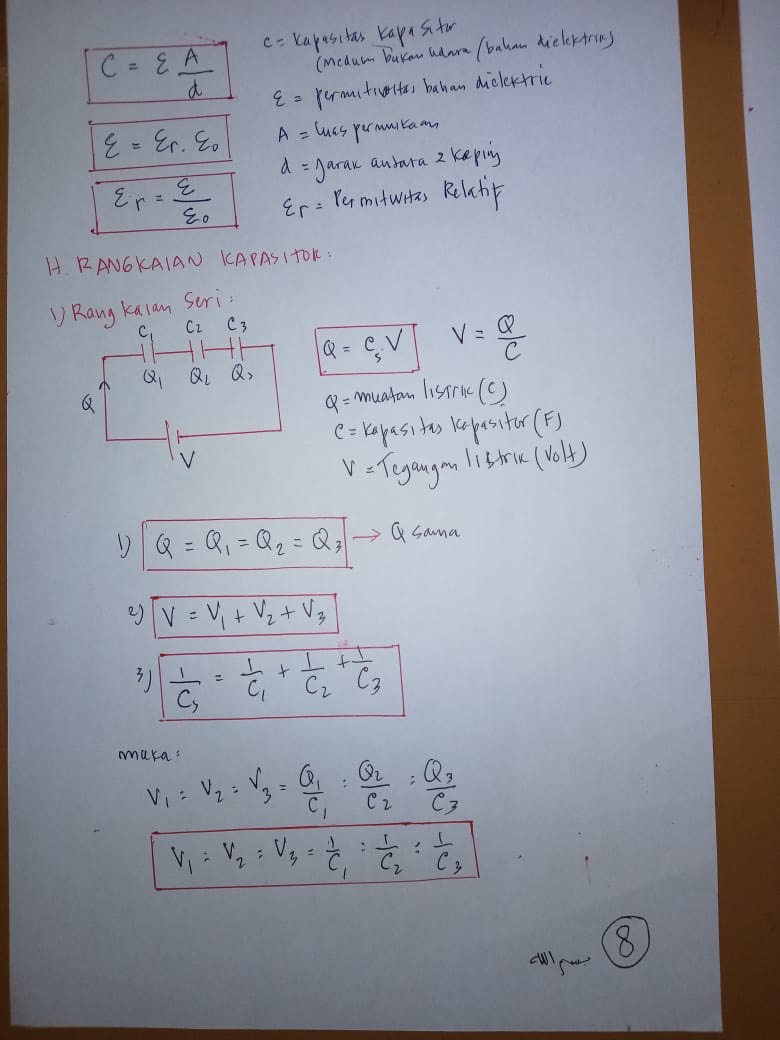 C = ε A/d
C = Kapasitas Kapasitor
(Medium bukan udara / bahan dielektrik)
ε = permitivitas bahan dielektric
ε = εr . ε0
A = luas permukaan
d = Jarak antara 2 keping
εr = ε/ε0
εr = Permitivitas Relatif
H. RANGKAIAN KAPASITOR :
1) Rangkaian Seri :
C1 C2 C3
Q1 Q2 Q3
Q
V
Q = Cs.V
V = Q/C
Q = muatan listrik (C)
C = Kapasitas kapasitor (F)
V = Tegangan listrik (Volt)
1) Q = Q1 = Q2 = Q3 → Q sama
2) V = V1 + V2 + V3
3) 1/Cs = 1/C1 + 1/C2 + 1/C3
maka :
V1 : V2 : V3 = Q1/C1 : Q2/C2 : Q3/C3
V1 : V2 : V3 = 1/C1 : 1/C2 : 1/C3
8
بسم الله